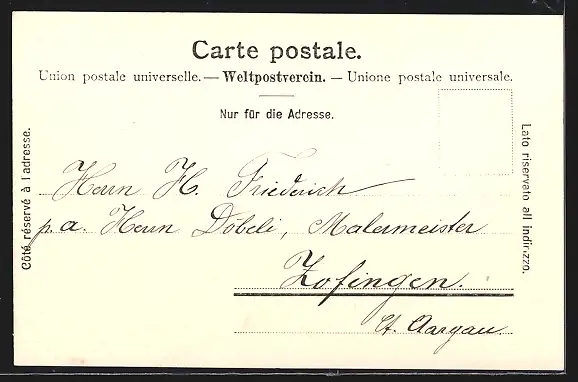 Carte postale.
Union postale universelle. — Weltpostverein. — Unione postale universale.
Nur für die Adresse.
Côté réservé à l'adresse.
Lato riservato all indirizzo.
Herrn H. Friederich
p. a. Herrn Döbeli, Malermeister
Zofingen.
Ct. Aargau.